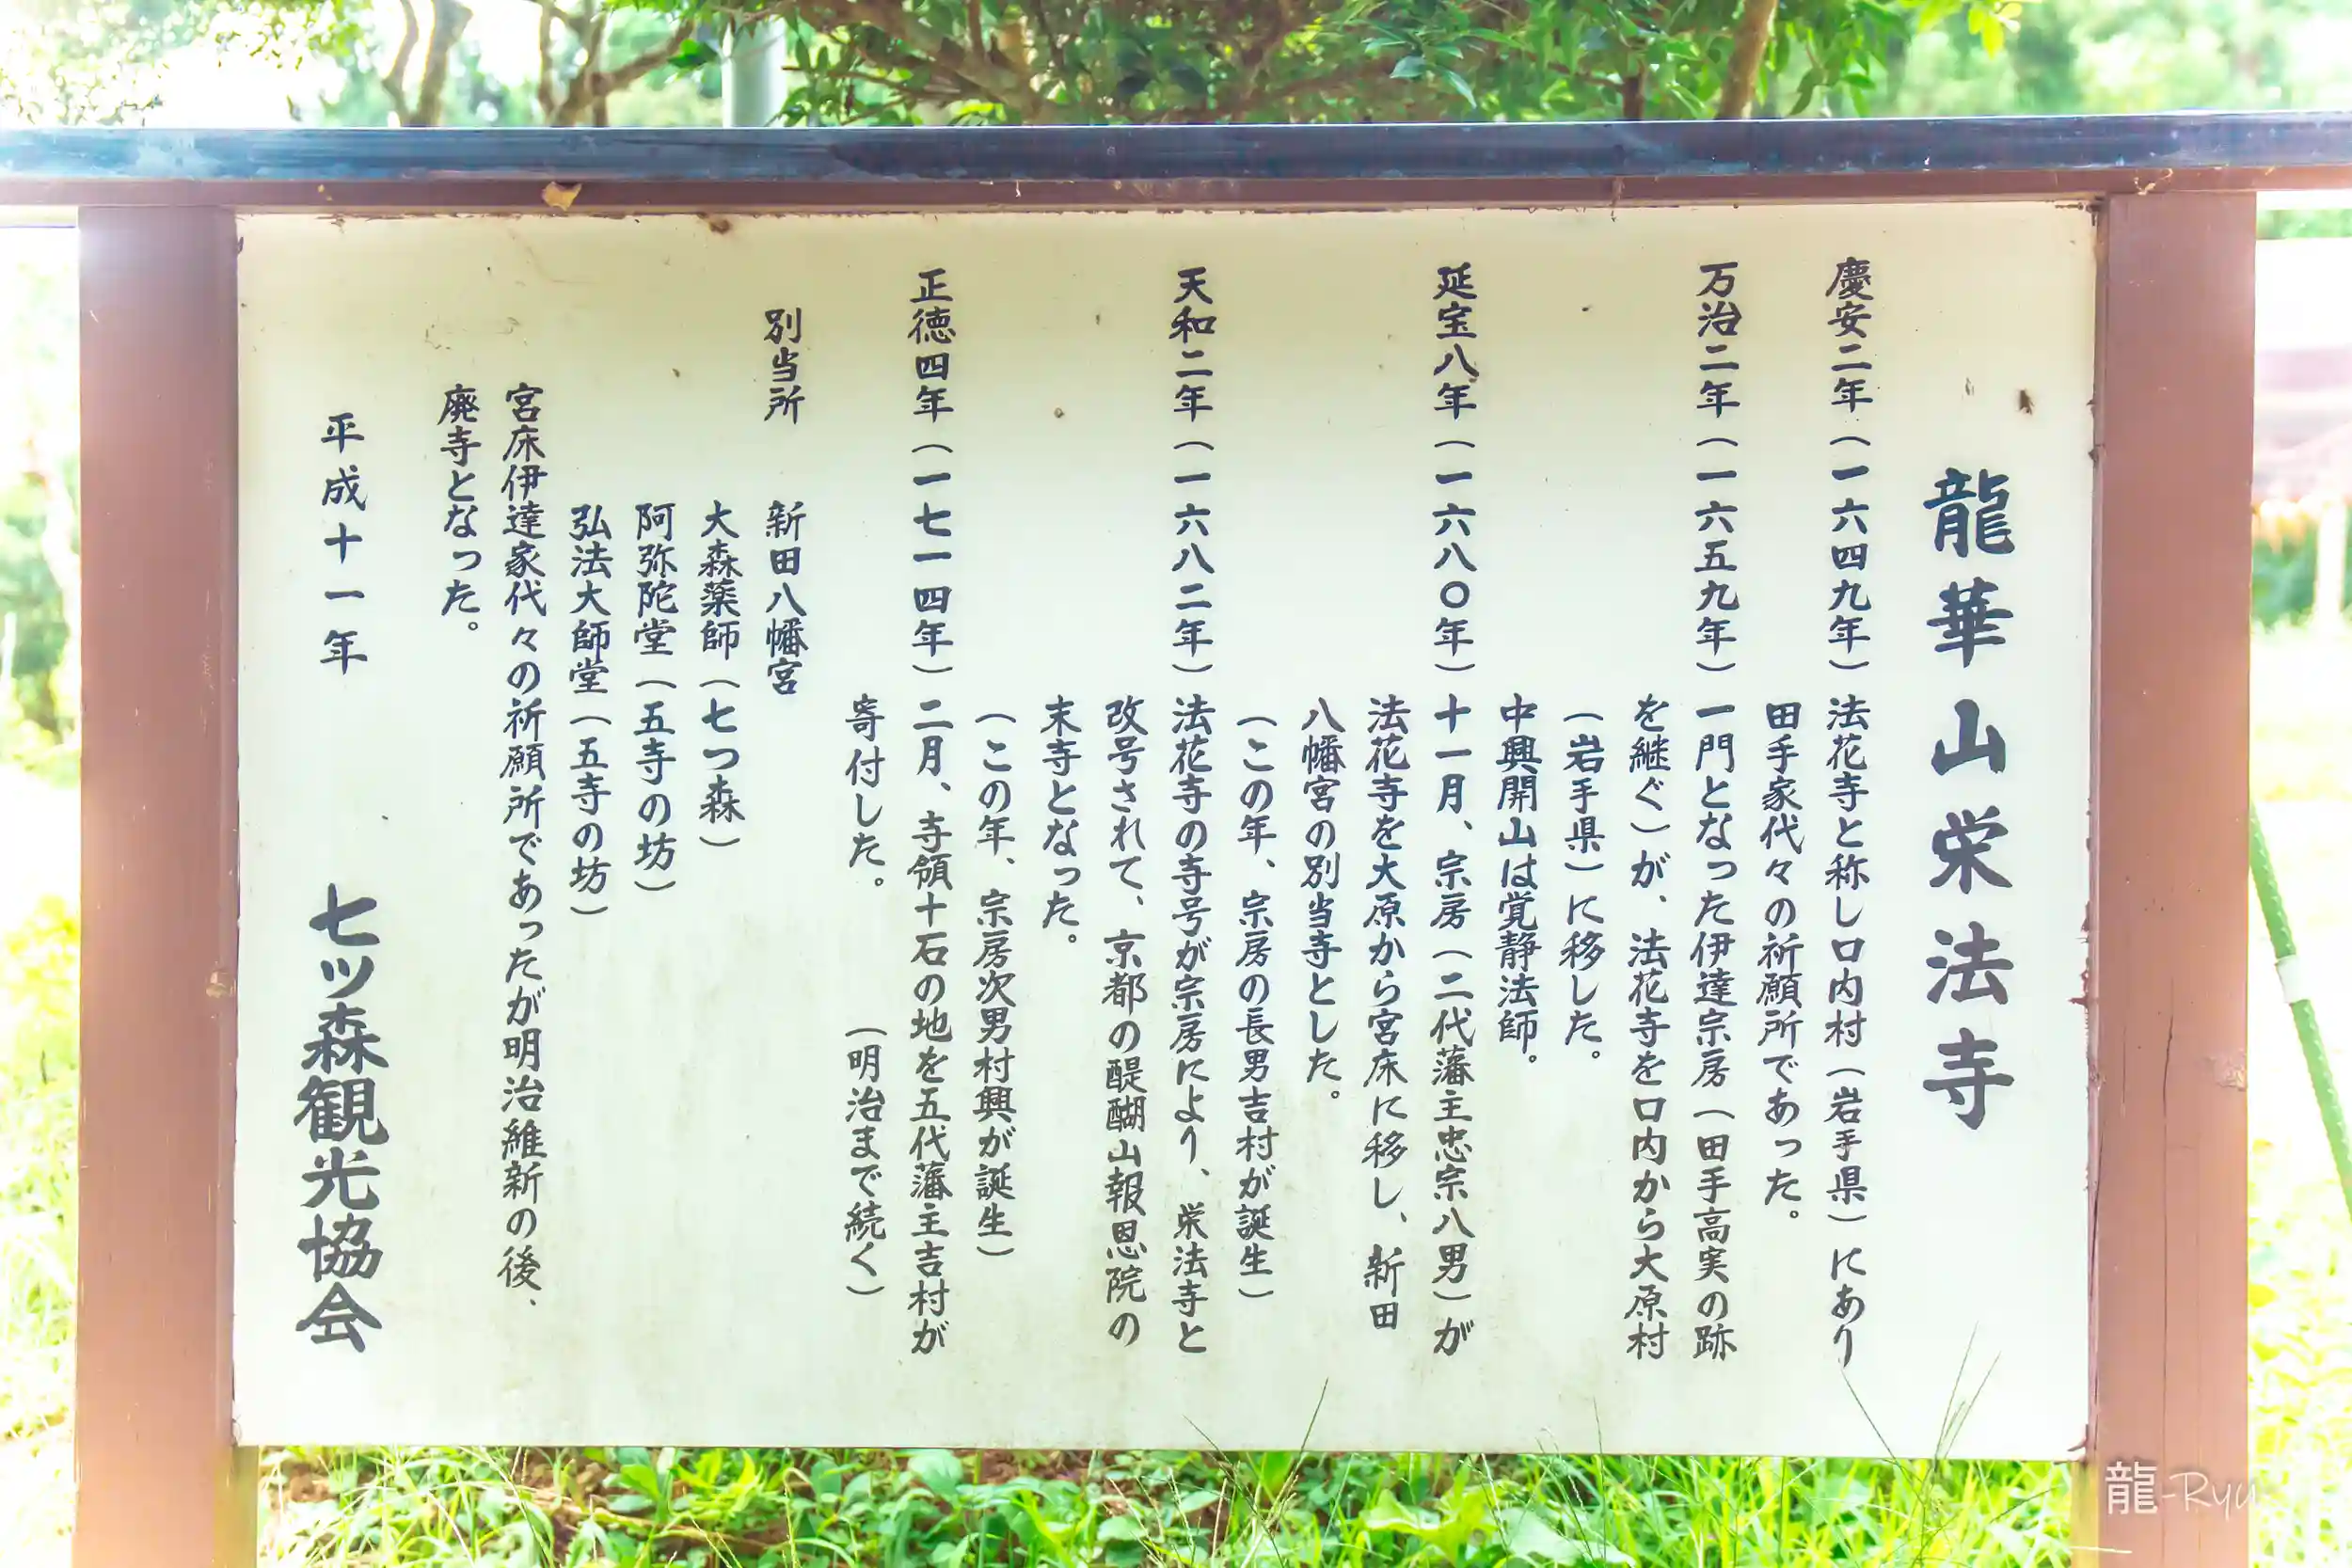 龍華山栄法寺
慶安二年（一六四九年）法花寺と称し口内村（岩手県）にあり
田手家代々の祈願所であった。
万治二年（一六五九年）一門となった伊達宗房（田手高実の跡
を継ぐ）が、法花寺を口内から大原村
（岩手県）に移した。
中興開山は覚静法師。
延宝八年（一六八〇年）十一月、宗房（二代藩主忠宗八男）が
法花寺を大原から宮床に移し、新田
八幡宮の別当寺とした。
（この年、宗房の長男吉村が誕生）
天和二年（一六八二年）法花寺の寺号が宗房により、栄法寺と
改号されて、京都の醍醐山報恩院の
末寺となった。
（この年、宗房次男村興が誕生）
正徳四年（一七一四年）二月、寺領十石の地を五代藩主吉村が
寄付した。（明治まで続く）
別当所 新田八幡宮
大森薬師（七つ森）
阿弥陀堂（五寺の坊）
弘法大師堂（五寺の坊）
宮床伊達家代々の祈願所であったが明治維新の後、
廃寺となった。
平成十一年 七ツ森観光協会
龍-Ryu